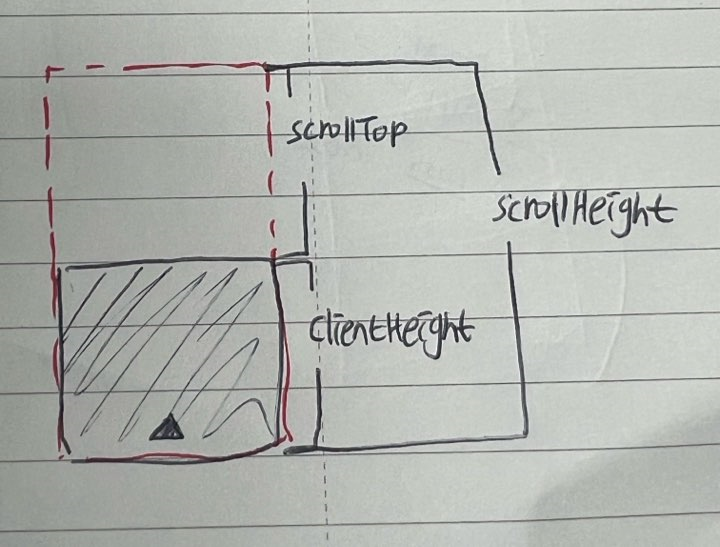 scrollTop
scrollHeight
clientHeight